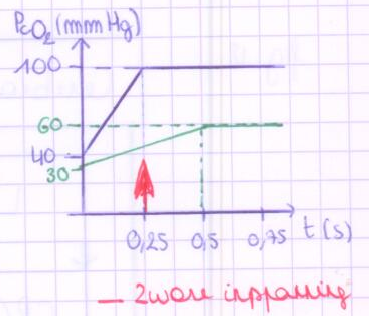 PcO₂ (mmHg)
100
60
40
30
0,25 0,5 0,75 t(s)
— zware inspanning